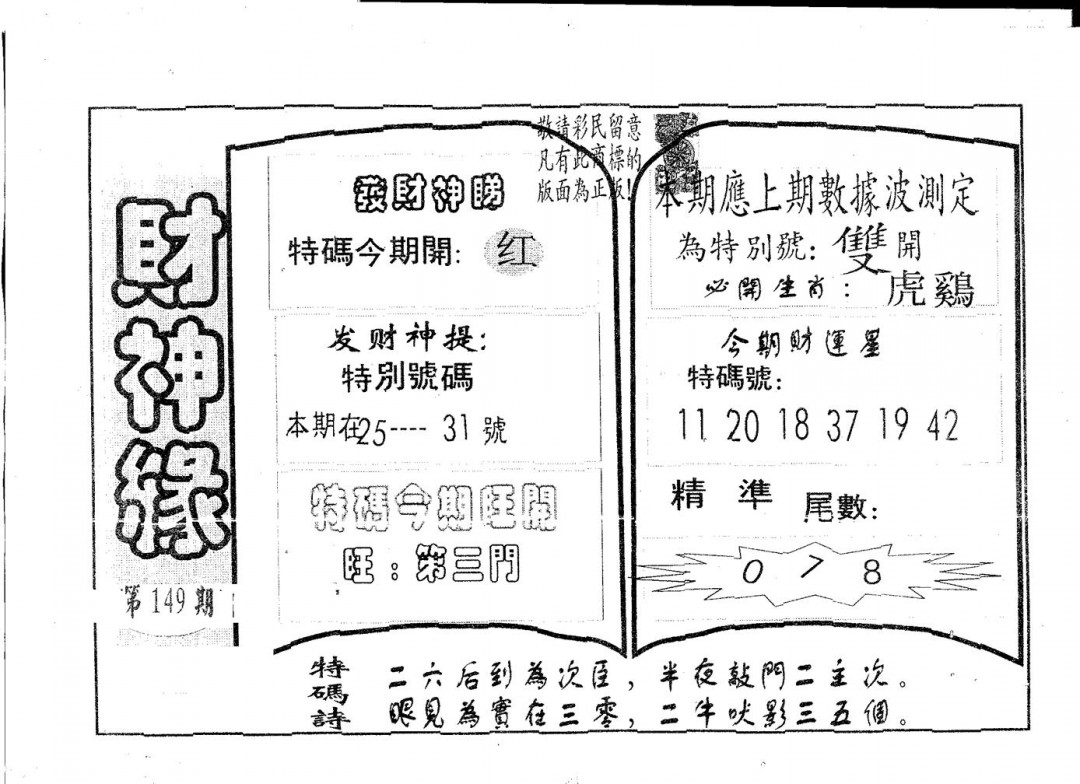 財神緣
第149期
敬請彩民留意
凡有此商標的
版面為正版!
發財神賜
特碼今期開: 红
发财神提:
特別號碼
本期在25---- 31 號
特碼今期旺開
旺:第三門
本期應上期數據波測定
為特別號:雙開
必開生肖:虎鷄
今期財運星
特碼號:
11 20 18 37 19 42
精準 尾數:
0 7 8
特碼詩
二六后到為次臣,半夜敲門二主次。
眼見為實在三零,二牛吠影三五個。